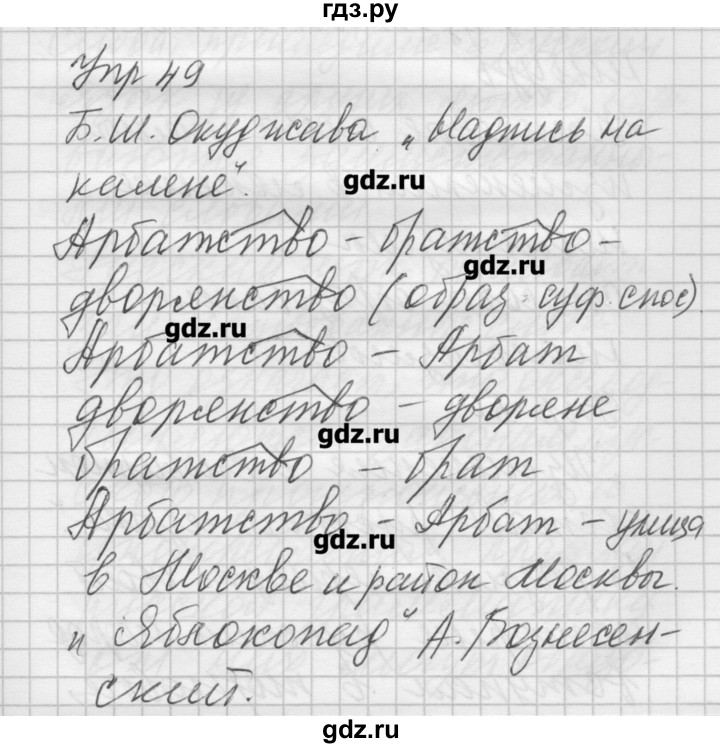 гдз.ру
Упр 49
Б.Ш. Окуджава „Надпись на
камене".
gdz.ru
Арбатство – братство –
gdz.ru
дворянство (образ. суф. спос).
gdz.ru
Арбатство – Арбат
дворянство – дворяне
gdz.ru
братство – брат
Арбатство – Арбат – улица
gdz.ru
в Москве и район Москвы.
„Яблокопад" А. Вознесен-
ский.
gdz.ru